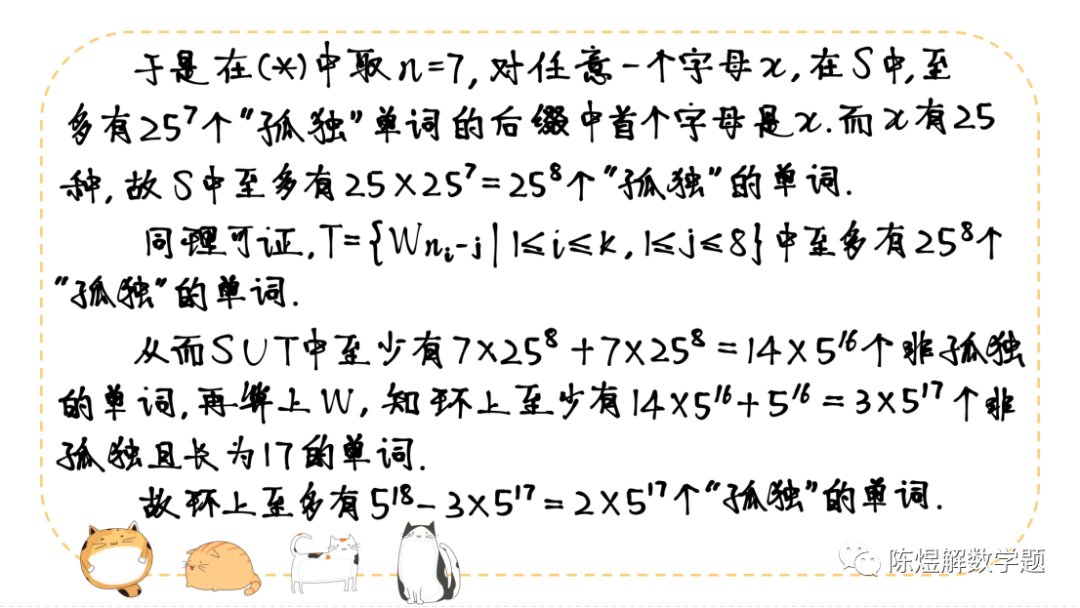 于是在(*)中取n=7,对任意一个字母x,在S中,至
多有25⁷个"孤独"单词的后缀中首个字母是x.而x有25
种,故S中至多有25×25⁷=25⁸个"孤独"的单词.
同理可证,T={Wnᵢ-j|1≤i≤k,1≤j≤8}中至多有25⁸个
"孤独"的单词.
从而S∪T中至少有7×25⁸+7×25⁸=14×5¹⁶个非孤独
的单词,再算上W,知环上至少有14×5¹⁶+5¹⁶=3×5¹⁷个非
孤独且长为17的单词.
故环上至多有5¹⁸-3×5¹⁷=2×5¹⁷个"孤独"的单词.
陈煜解数学题